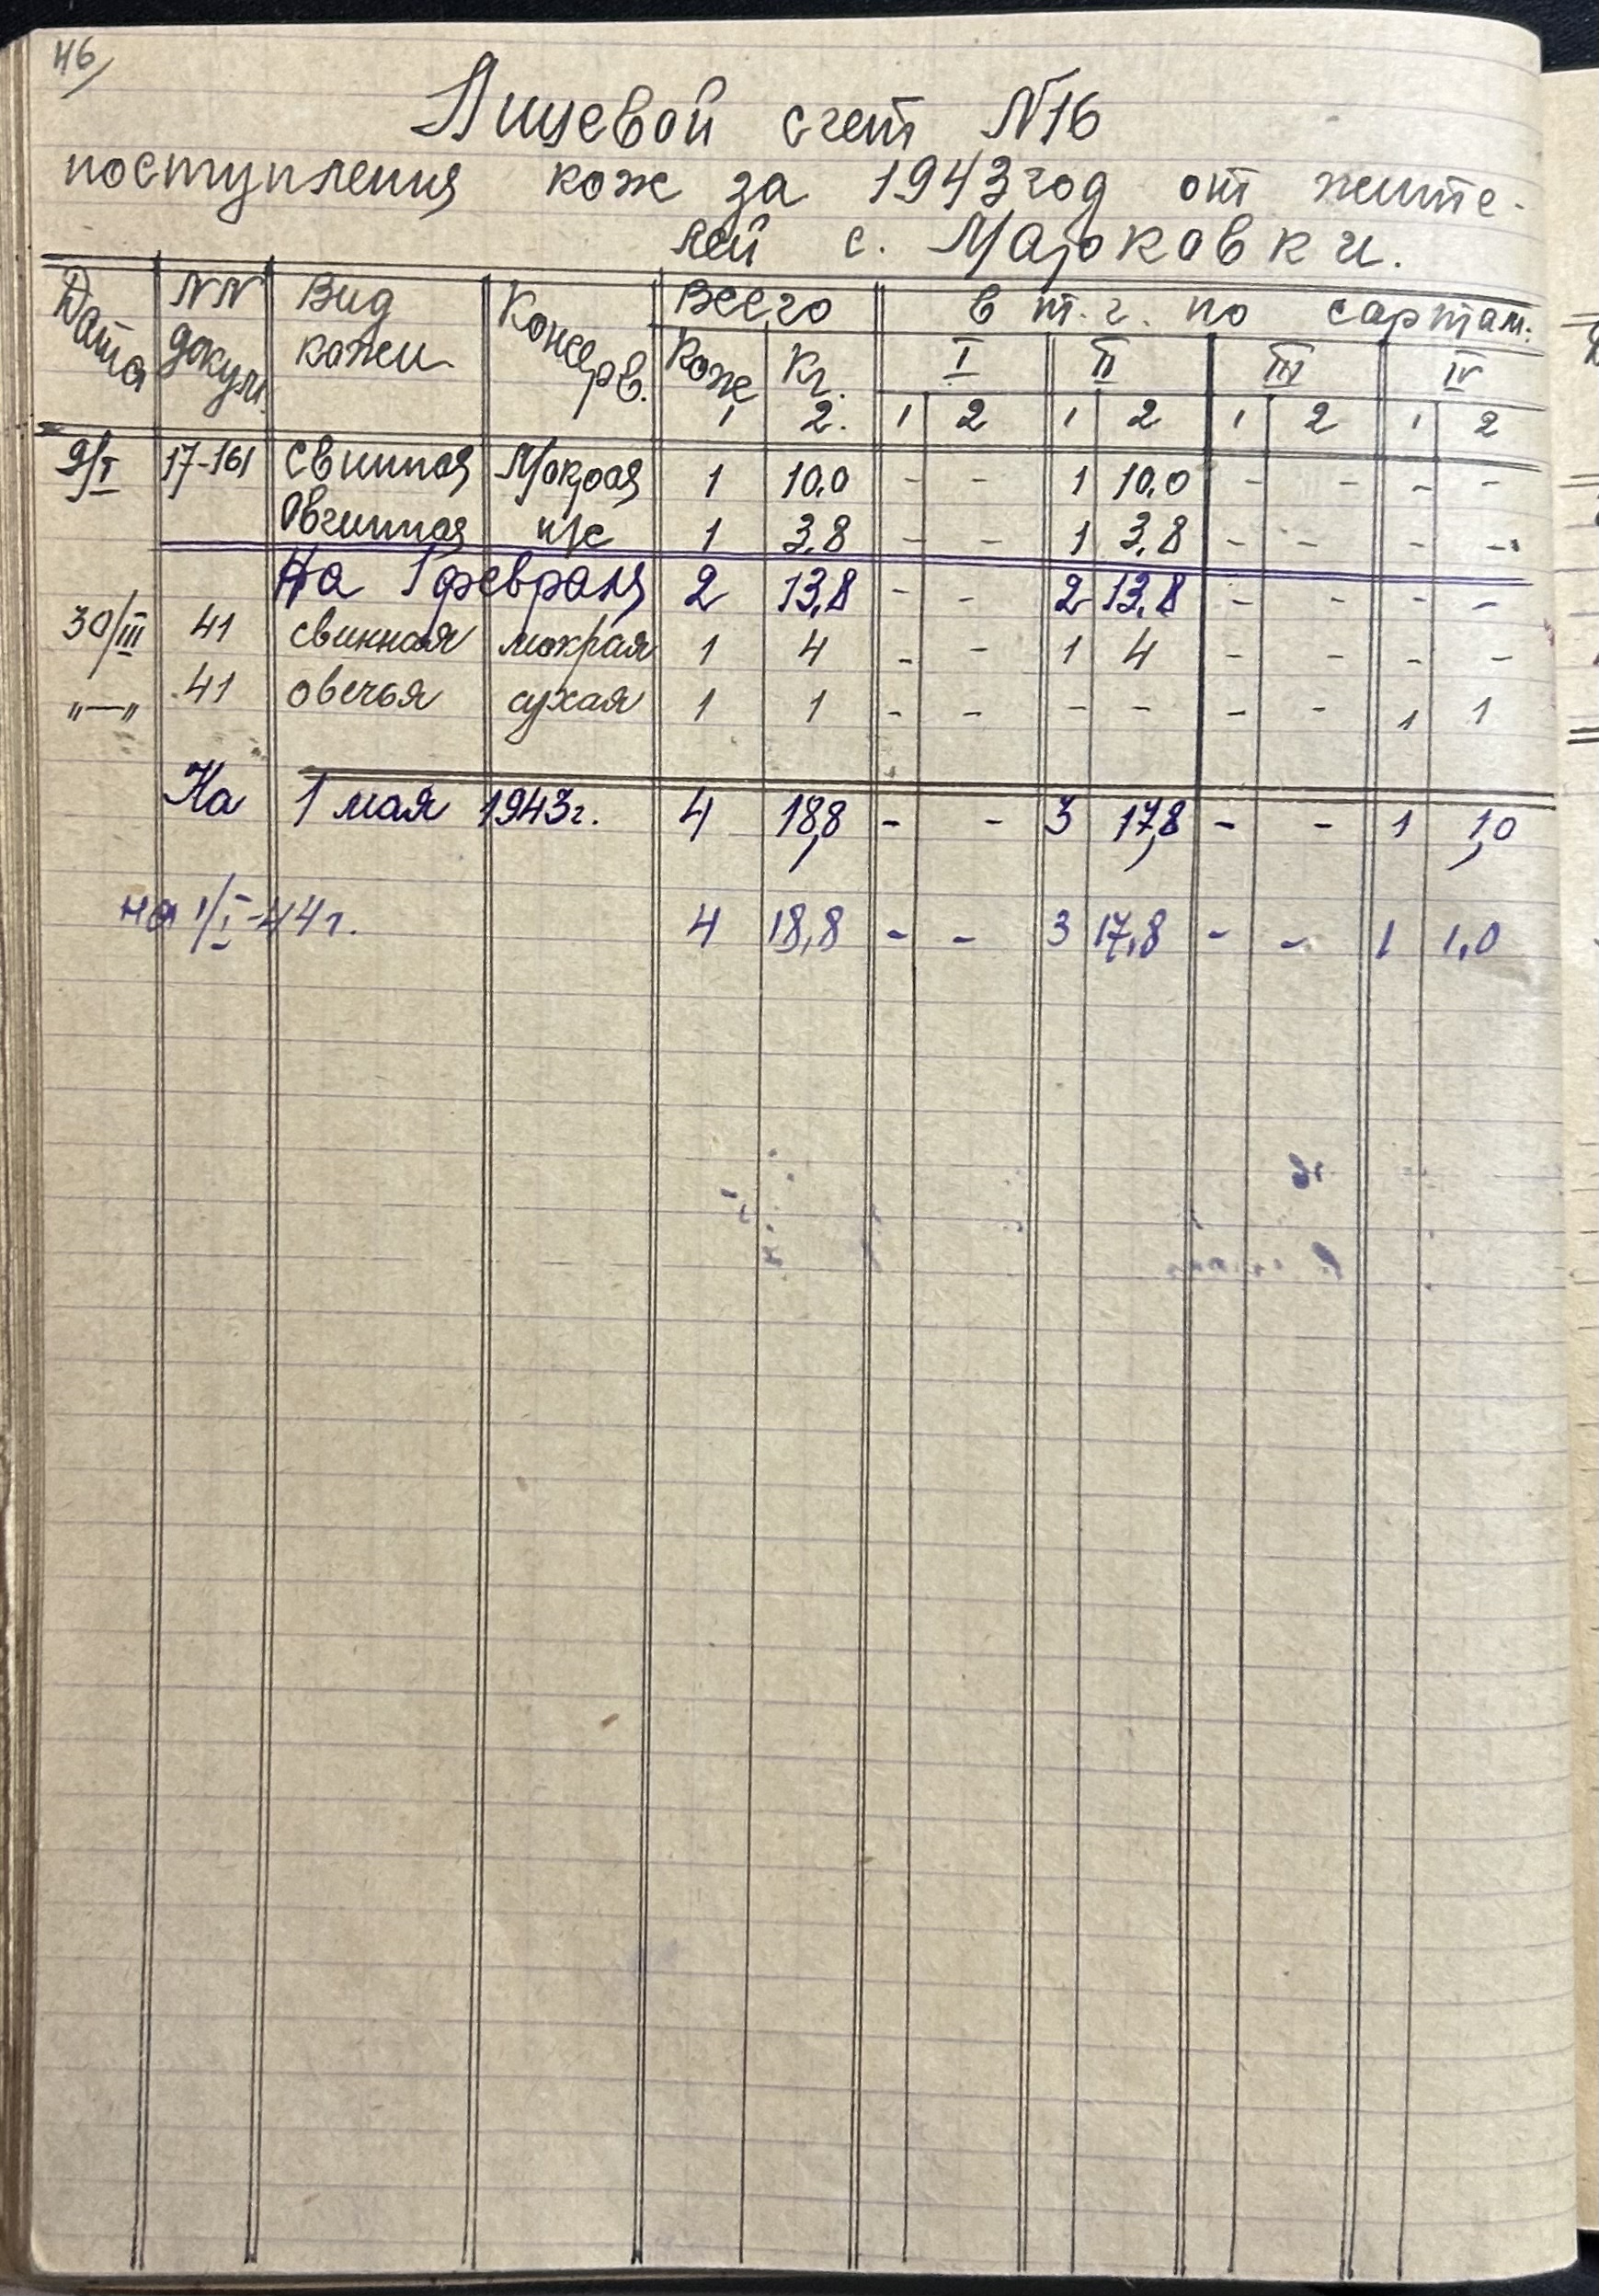 46/
Лицевой счет N16
поступления кож за 1943 год от жите-
лей с. Марковки.
Дата NN докум. Вид кожи Консерв. Всего в т.ч. по сартам.
Кож Кг. I II III IV
1 2. 1 2 1 2 1 2 1 2
9/I 17-161 Свинная Мокрая 1 10,0 - - 1 10,0 - - - -
Овчинная п/с 1 3,8 - - 1 3,8 - - - -
На 1 февраля 2 13,8 - - 2 13,8 - - - -
30/III 41 свинная мокрая 1 4 - - 1 4 - - - -
"—" 41 овечья сухая 1 1 - - - - - - 1 1
На 1 мая 1943г. 4 18,8 - - 3 17,8 - - 1 1,0
на 1/I-44г. 4 18,8 - - 3 17,8 - - 1 1,0